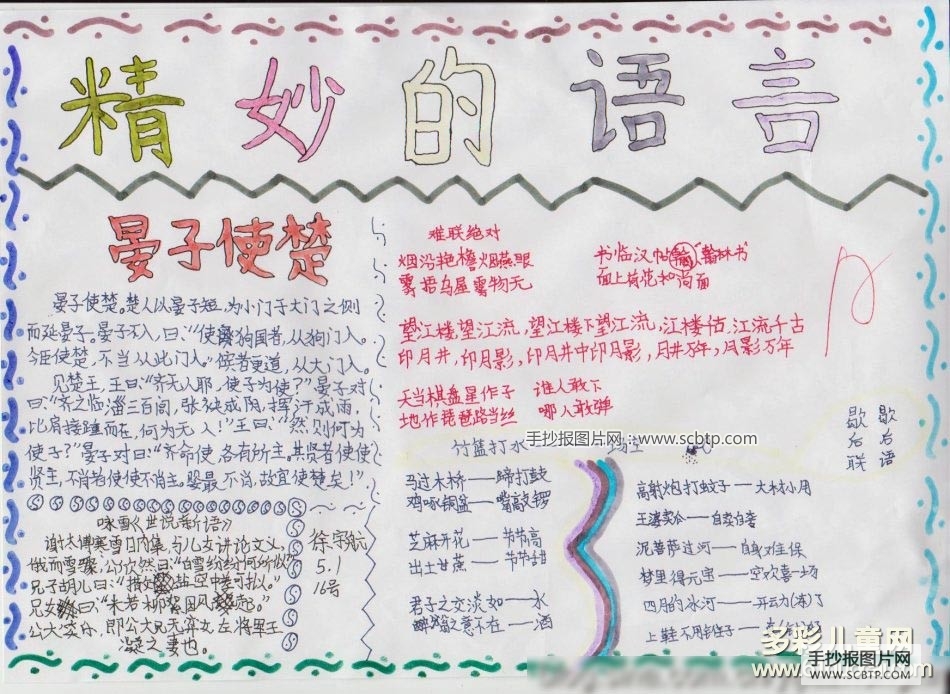 精妙的语言
晏子使楚
晏子使楚。楚人以晏子短,为小门于大门之侧
而延晏子。晏子不入,曰:“使狗国者,从狗门入。
今臣使楚,不当从此门入。”傧者更道,从大门入。
见楚王,王曰:“齐无人耶,使子为使?”晏子对
曰:“齐之临淄三百闾,张袂成阴,挥汗成雨,
比肩接踵而在,何为无人!”王曰:“然则何为
使子?”晏子对曰:“齐命使,各有所主。其贤者使使
贤王,不肖者使使不肖王。婴最不肖,故宜使楚矣!”
咏雪《世说新语》
谢太傅寒雪日内集,与儿女讲论文义,
俄而雪骤,公欣然曰:“白雪纷纷何所似?”
兄子胡儿曰:“撒盐空中差可拟。”
兄女曰:“未若柳絮因风起。”
公大笑乐,即公大兄无奕女,左将军王
凝之妻也。
徐宗航
5.1
16号
难联绝对
烟沿艳檐烟燕眼
雾捂乌屋雾物无
书临汉帖翰林书
面上荷花和尚面
望江楼望江流,望江楼下望江流,江楼千古,江流千古
印月井,印月影,印月井中印月影,月井万年,月影万年
天当棋盘星作子 谁人敢下
地作琵琶路当丝 哪人敢弹
歇后联
歇后语
竹篮打水
马过木桥——蹄打鼓
鸡啄铜盆——嘴敲锣
芝麻开花——节节高
出土甘蔗——节节甜
君子之交淡如——水
醉翁之意不在——酒
高射炮打蚊子——大材小用
王婆卖瓜——自卖自夸
泥菩萨过河——自身难保
梦里得元宝——空欢喜一场
四月的冰河——开动(冻)了
上鞋不用锥子——
手抄报图片网:www.scbtp.com
多彩儿童网
手抄报图片网
WWW.SCBTP.COM